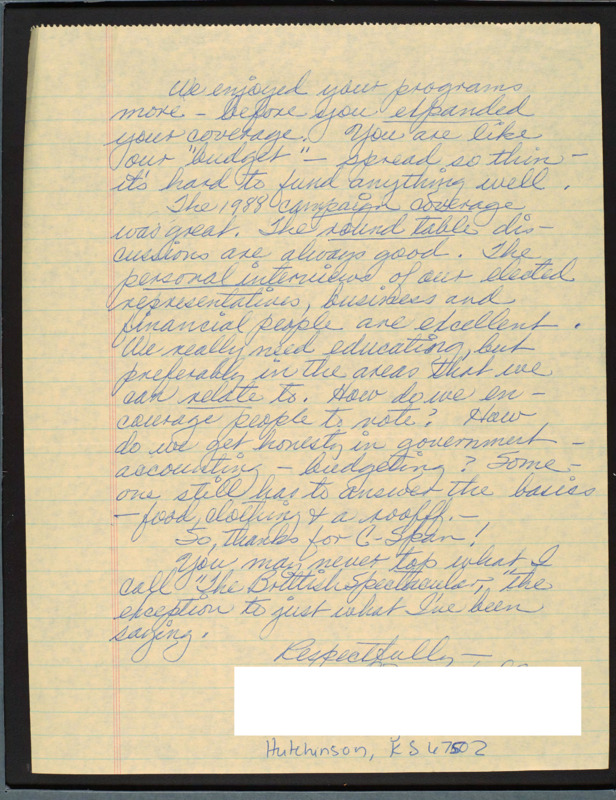 We enjoyed your programs
more - before you expanded
your coverage. You are like
our "budget" - spread so thin -
it's hard to fund anything well.
The 1988 campaign coverage
was great. The round table dis-
cussions are always good. The
personal interviews of our elected
representatives, business and
financial people are excellent.
We really need educating, but
preferably in the areas that we
can relate to. How do we en-
courage people to vote? How
do we get honesty in government -
accounting - budgeting? Some-
one still has to answer the basics
- food, clothing & a roof. -
So, thanks for C-Span!
You may never top what I
call "The Brittish Spectacular", the
exception to just what I've been
saying.
Respectfully -
Hutchinson, KS 67502